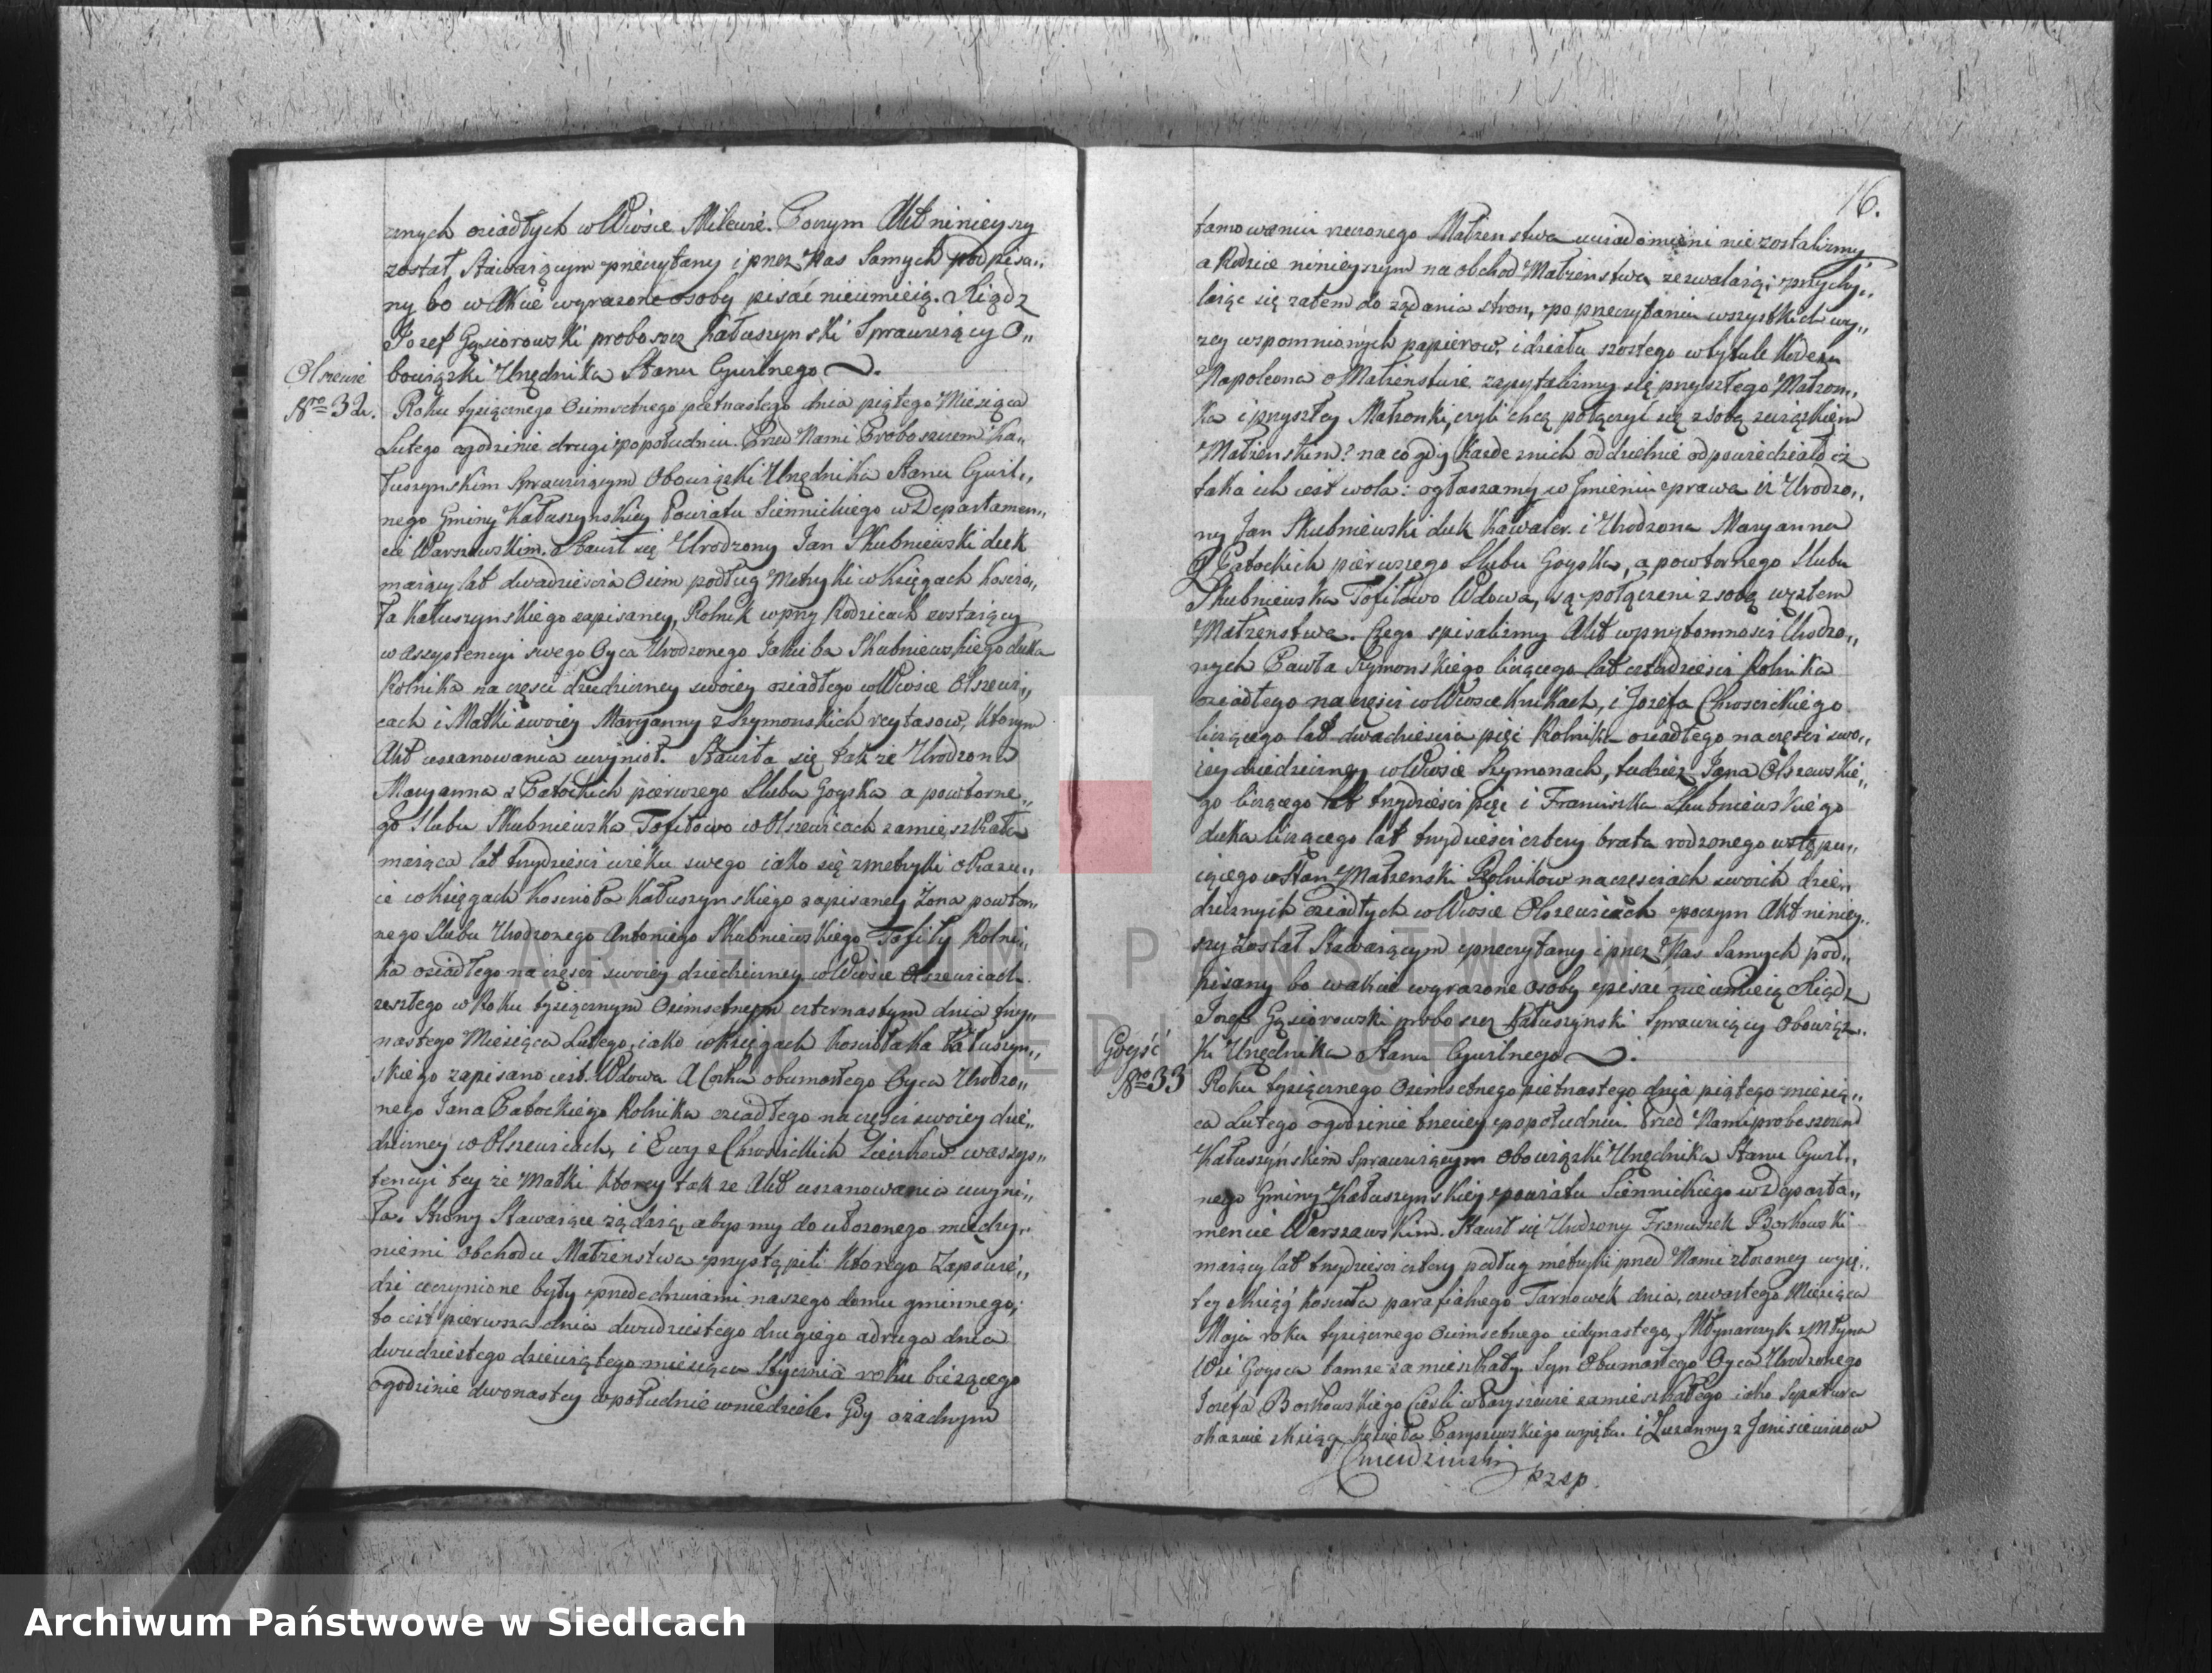 znych osiadłych w Wiosce Milewie. Poczym Akt ninieyszy
został Stawaiącym przeczytany i przez Nas Samych podpisa„
ny bo w Akcie wyrażone osoby pisać nieumieią. Xiądz
Jozef Gąsiorowski proboszcz Kałuszynski Sprawuiący O„
bowiązki Urzędnika Stanu Cywilnego.
Olszewic
Nro 32.
Roku tysiącznego Osimsetnego piętnastego dnia piątego Miesiąca
Lutego o godzinie drugi popołudniu. Przed Nami Proboszczem Ka„
łuszynskim Sprawuiącym Obowiązki Urzędnika Stanu Cywil„
nego Gminy Kałuszynskiey Powiatu Siennickiego w Departamen„
cie Warszawskim. Stawił się Urodzony Jan Skubniewski duk
maiący lat dwadzieścia Osim podług Metryki w Księgach Koscio„
ła Kałuszynskiego zapisaney, Rolnik w przy Rodzicach zostaiący
w Aszystencyi swego Oyca Urodzonego Jakuba Skubniewskiego duka
Rolnika na częsci dziedziczney swoiey osiadłego w Wiosce Olszewi„
cach i Matki swoiey Maryanny z Szymonskich rcytasow, ktorym
Akt uszanowania uczynioł. Stawiła się także Urodzona
Maryanna z Patockich pierwszego Slubu Goyska a powtorne„
go Slubu Skubniewska Tofiłowo w Olszewicach zamieszkała
maiąca lat trzydzieści wieku swego iako się z metryki okazu„
ie w księgach Kosciola Kałuszynskiego zapisaney Zona powtor„
nego Slubu Urodzonego Antoniego Skubniewskiego Tofiły Rolni„
ka osiadłego na części swoiey dziedziczney w Wiosce Olszewicach
zeszłego w Roku tysiącznym Osimsetnym czternastym dnia trzy„
nastego Miesiąca Lutego, iako w księgach kosciołaka Kałuszyn„
skiego zapisano iest. Wdowa A Corka obumarłego Oyca Urodzo„
nego Jana Patockiego Rolnika osiadłego na części swoiey dzie„
dziczney w Olszewicach, i Ewy z Chroscickich w aszys„
tencyi tey że Matki ktorey także Akt uszanowania uczyni„
ła. Strony Stawaiące żądaią, abysmy do ułożonego między„
niemi obchodu Małżenstwa przystąpili ktorego Zapowie„
dzi uczynione były przed drzwiami naszego domu gminnego;
to iest pierwsza dnia dwudziestego drugiego a druga dnia
dwudziestego dziewiątego miesiąca Stycznia roku bieżącego
o godzinie dwonastey w południe w niedziele. Gdy o żadnym
16.
tamowaniu rzeczonego Małżenstwa uwiadomieni nie zostaliśmy
a Rodzice ninieyszym na obchod Małżenstwa zezwalaią; przychy„
laiąc się zatem do żądania stron, po przeczytaniu wszystkich wy„
żey wspomnionych papierow, i działu szostego w tytule Kodexu
Napoleona o Małżenstwie zapytaliśmy się przyszłego Małżon„
ka i przyszłey Małżonki, czyli chcą połączyć się z sobą związkiem
Małżenskim? na co gdy Każde z nich oddzielnie odpowiedziało iż
taka ich iest wola: ogłaszamy w Imieniu prawa iż Urodzo„
ny Jan Skubniewski duk Kawaler. i Urodzona Maryanna
z Patockich pierwszego Slubu Goyska, a powtornego Slubu
Skubniewska Tofiłowo Wdowa, są połączeni z sobą węzłem
Małżenstwa. Czego spisaliśmy Akt w przytomnosci Urodzo„
nych Pawła Szymonskiego liczącego lat czterdziesci Rolnika
osiadłego na części w Wiosce Krukach, i Jozefa Chroscickiego
liczącego lat dwadzieścia pięć Rolnika osiadłego na części swo„
iey dziedziczney w Wiosce Szymonach, tudzież Jana Olszewskie„
go liczącego lat trzydzieści pięć i Franciszka Skubniewskiego
duka liczącego lat trzydzieści cztery brata rodzonego wstępu„
iącego w Stan Małżenski Rolnikow na częsciach swoich dzie„
dzicznych osiadłych w Wiosce Olszewicach poczym Akt niniey„
szy Został Stawaiącym przeczytany i przez Nas Samych pod„
pisany bo w akcie wyrażone Osoby pisać nieumieią Xiądz
Jozef Gąsiorowski proboszcz Kałuszynski Sprawuiący Obowiąz„
ki Urzędnika Stanu Cywilnego.
Goyść
Nro 33
Roku tysiącznego Osimsetnego piętnastego dnia piątego miesią„
ca Lutego o godzinie trzeciey popołudniu. Przed Nami proboszczem
Kałuszyńskim Sprawuiącym Obowiązki Urzędnika Stanu Cywil„
nego Gminy Kałuszynskiey powiatu Siennickiego w Departa„
mencie Warszawskim. Stawił się Urodzony Franciszek Borkowski
maiący lat trzydzieści cztery podług metryki przed Nami złożoney wyię„
tey z Xiąg kościoła parafialnego Tarnowek dnia, czwartego Miesiąca
Maja roku tysiącznego Osimsetnego iedynastego, Młynarczyk z Młyna
Wsi Goysca tamże zamieszkały. Syn Obumarłego Oyca Urodzonego
Jozefa Borkowskiego Ciesli w Paryszewie zamieszkałego iako Sepultura
okazuie z ksiąg Kościoła Paryszewskiego wyięta. i Zuzanny z Janisiewiczow
pzsp.
ARCHIWUM PAŃSTWOWE
W SIEDLCACH
Archiwum Państwowe w Siedlcach